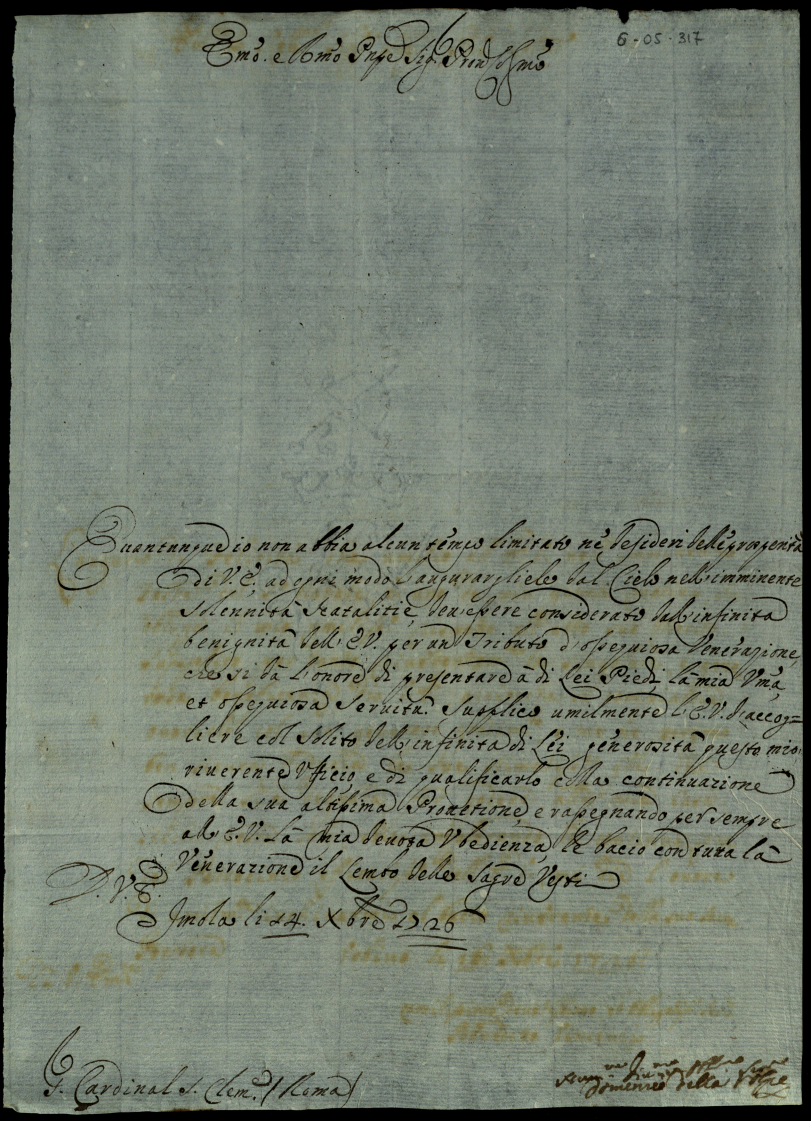 6-05-317
Emo. e Rmo Pnpe Sig. Pron Colmo
Quantunque io non abbia alcun tempo limitato ne' desideri delle prosperità
di V. E. ad ogni modo l'augurargliele dal Cielo nell'imminente
solennità Natalitie, dev'essere considerato dall'infinita
benignità dell'E.V. per un Tributo d'ossequiosa Venerazione,
che si dà l'onore di presentare à di Lei Piedi la mia Vma
et ossequiosa servitù. Supplico umilmente l'E.V. d'accog=
liere col solito dell'infinita di Lei generosità questo mio
riverente Ufficio e di qualificarlo colla continuazione
della sua altissima Protettione, e rassegnando per sempre
all'E.V. la mia devota Ubedienza, le bacio con tutta la
Venerazione il Lembo delle Sagre Vesti
D. V. E.
Imola li 14. Xbre 1726
S. Cardinal S. Clem. (Roma)
Domenico della Volpe